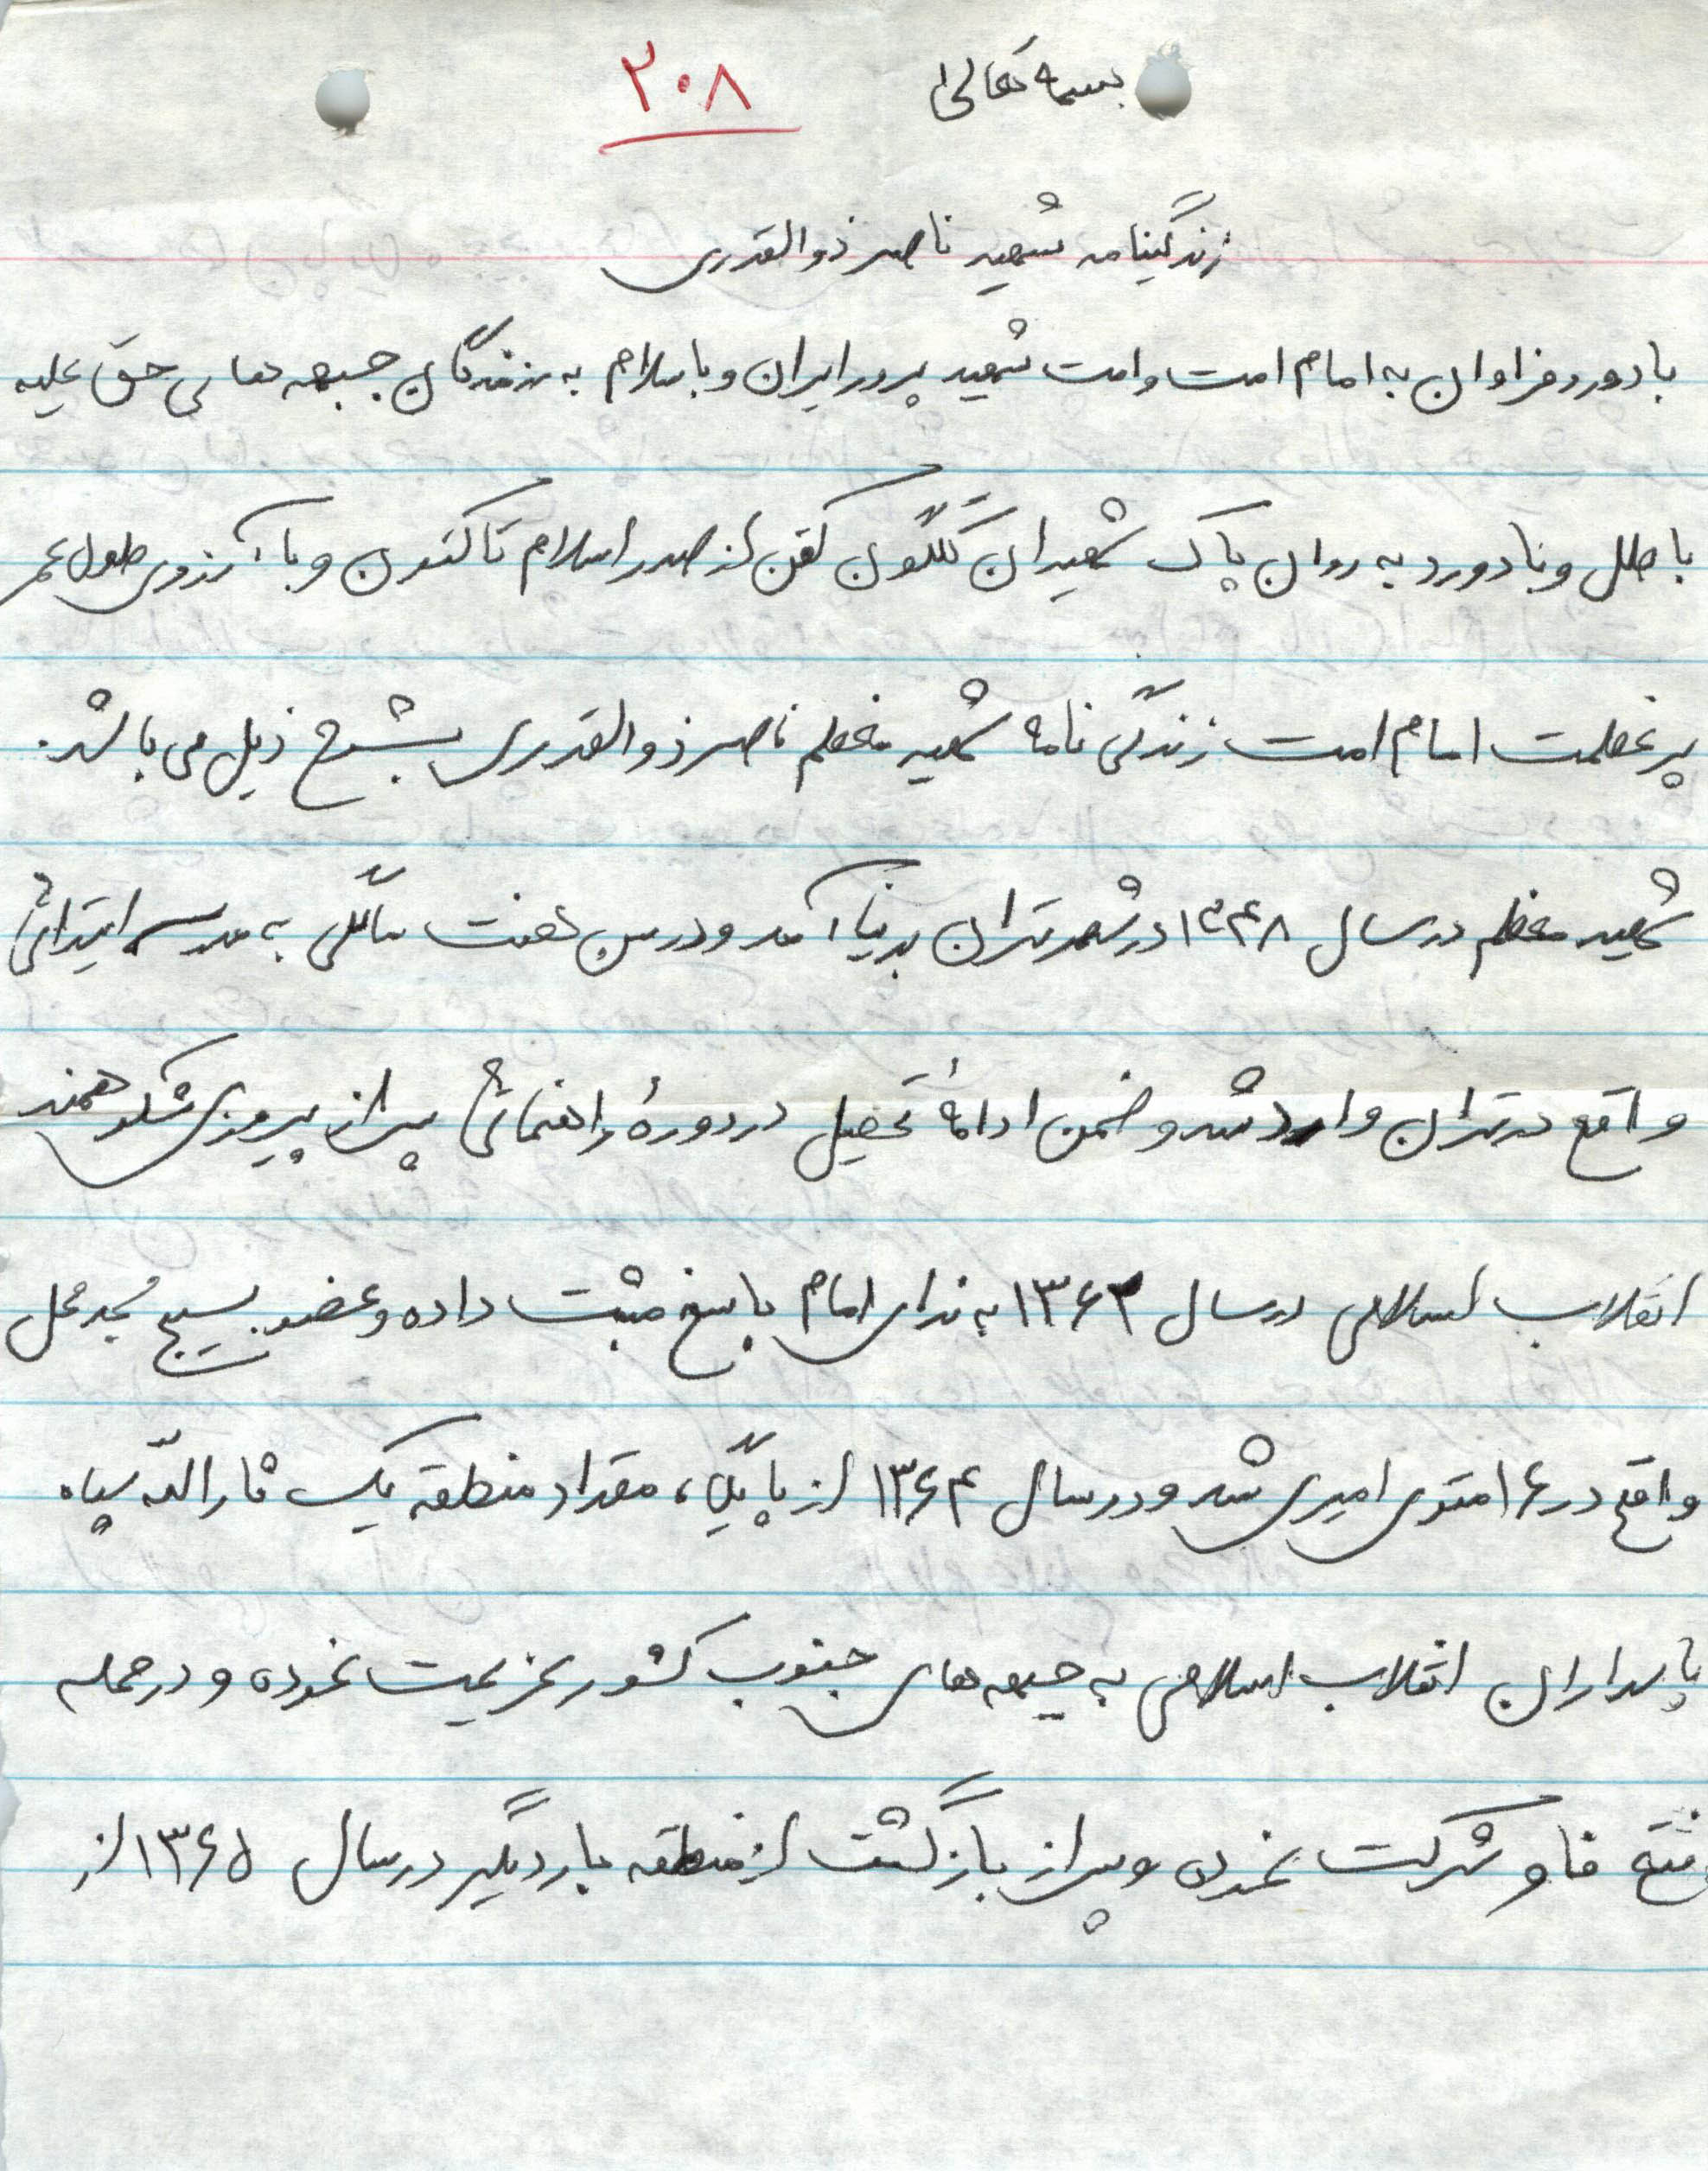 بسمه تعالی
۲۰۸
زندگینامه شهید ناصر ذوالقدری
با دورد فراوان به امام امت و امت شهید پرور ایران و با سلام به رزمندگان جبهه های حق علیه
باطل و با دورد به روان پاک شهیدان گلگون کفن از صدر اسلام تا کنون و با آرزوی طول عمر
پر عظمت امام امت زندگی نامهٔ شهید معظم ناصر ذوالقدری بشرح ذیل می باشد.
شهید معظم در سال ۱۳۴۸ در شهر تهران بدنیا آمد و در سن هفت سالگی به مدرسه ابتدائی
واقع در تهران وارد شد و ضمن ادامهٔ تحصیل در دورهٔ راهنمائی پس از پیروزی شکوهمند
انقلاب اسلامی در سال ۱۳۶۳ به ندای امام پاسخ مثبت داده و عضو بسیج مسجد محل
واقع در ۱۶ متری امیری شد و در سال ۱۳۶۴ از پایگاه مقداد منطقه یک ثارالله سپاه
پاسداران انقلاب اسلامی به جبهه های جنوب کشور عزیمت نموده و در حمله
فتح فاو شرکت نمودن و پس از بازگشت از منطقه بار دیگر در سال ۱۳۶۵ از